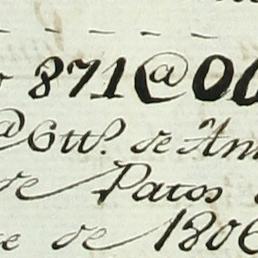 871@00
@6tt.s de An
de Patos
de 1806